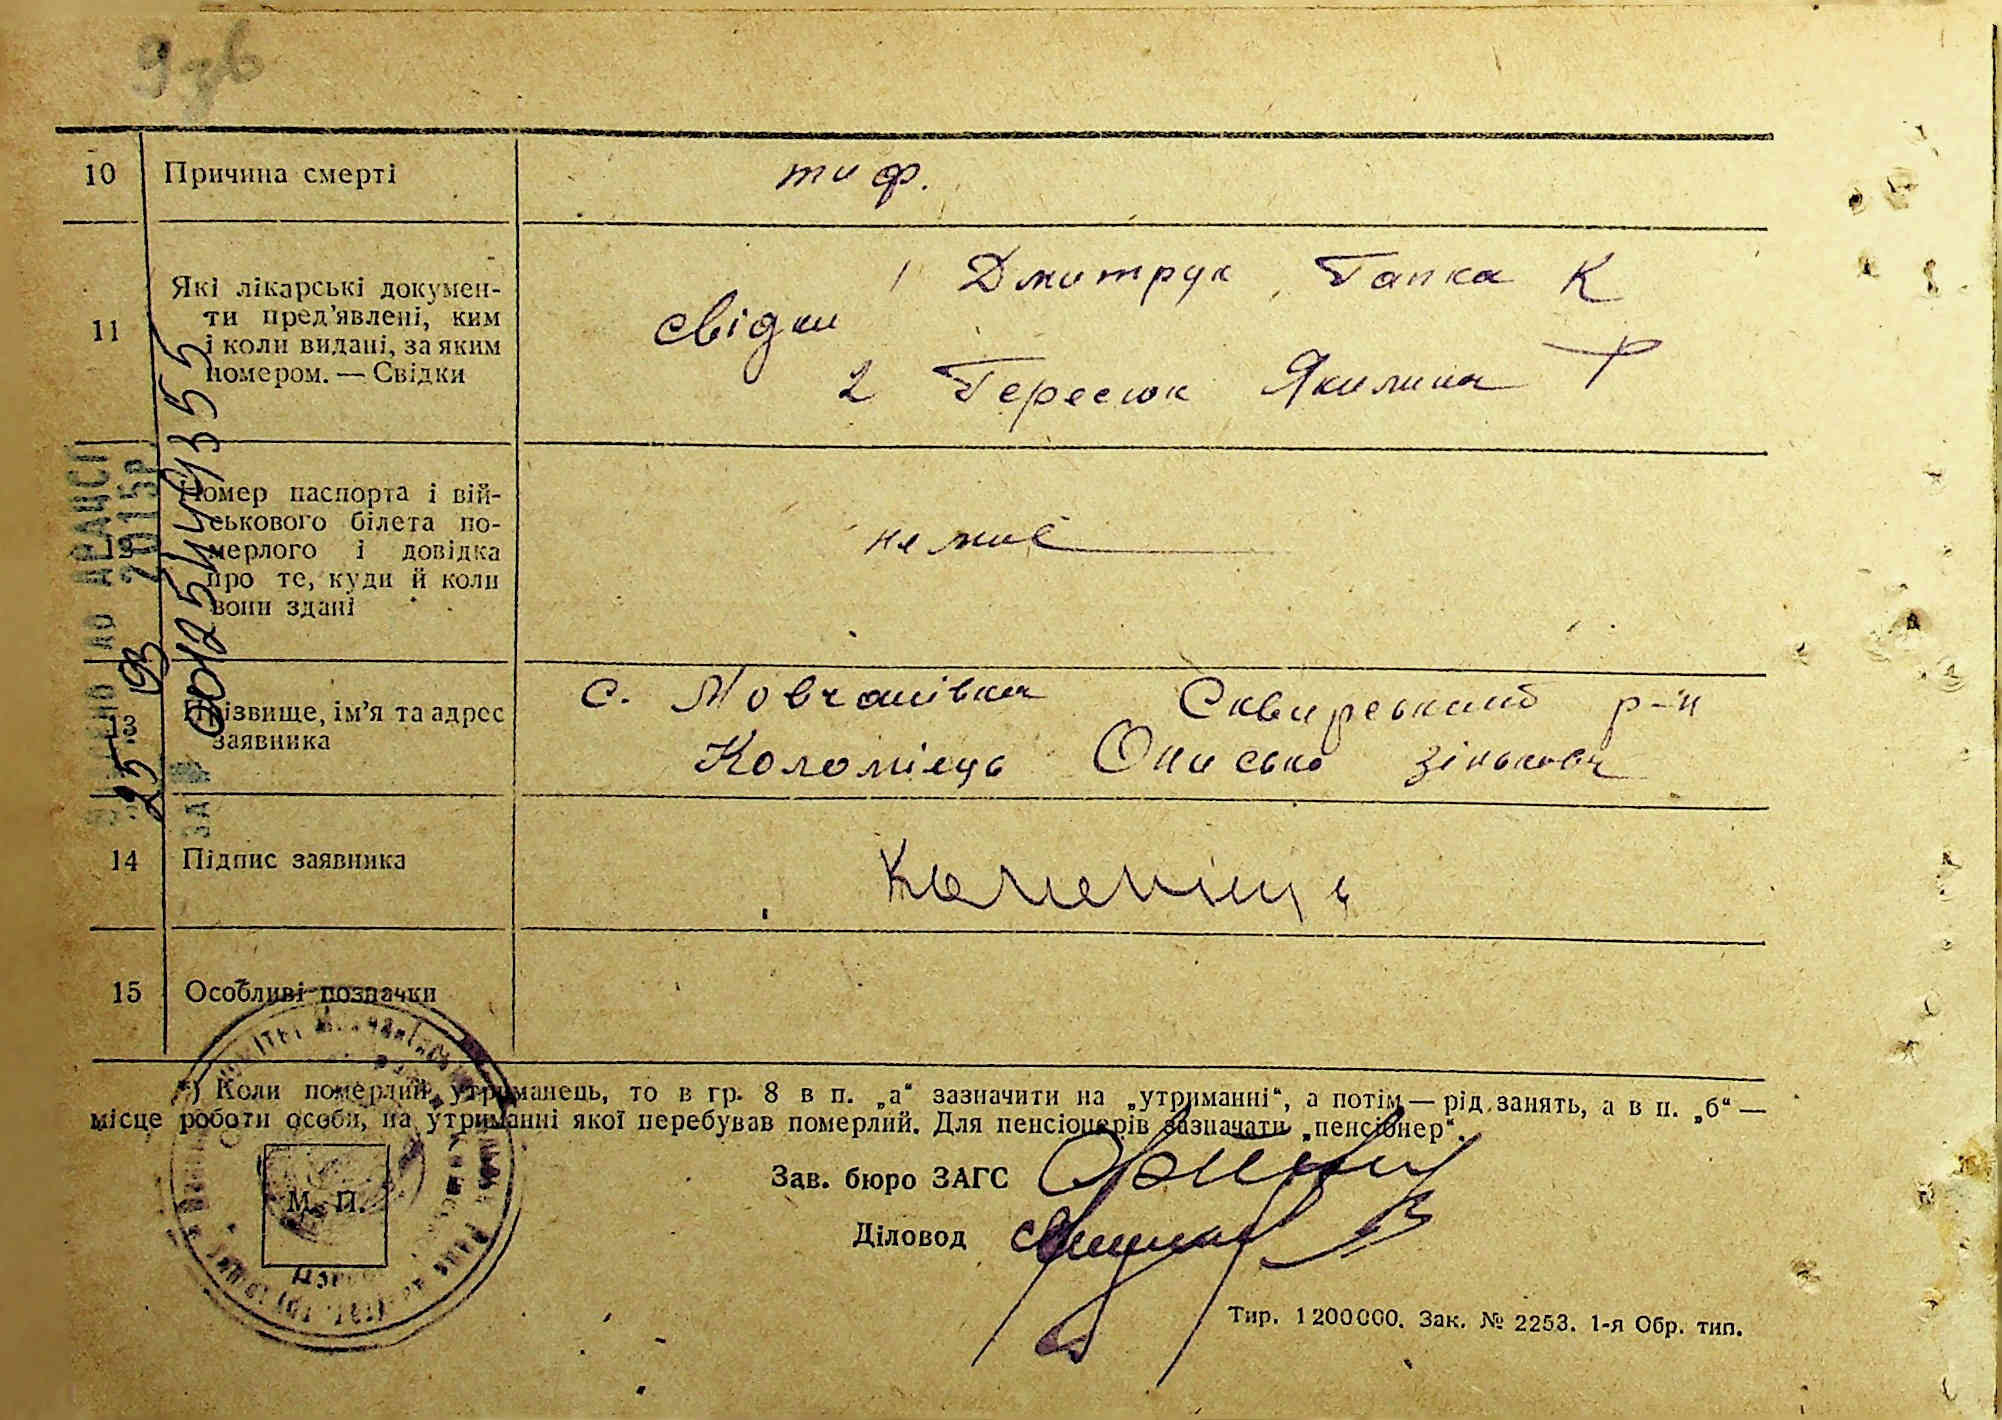 9 зв
10 Причина смерті тиф.
11 Які лікарські докумен-
ти пред'явлені, ким
і коли видані, за яким
номером. — Свідки
свідки 1 Дмитрук Гапка К
2 Тересюк Якилина Т
12 Номер паспорта і вій-
ськового білета по-
мерлого і довідка
про те, куди й коли
вони здані
немає
13 Прізвище, ім'я та адрес
заявника
с. Мовчанівка Сквирський р-н
Коломієць Онисько Зінькович
14 Підпис заявника
Коломієць
15 Особливі позначки
*) Коли померлий утриманець, то в гр. 8 в п. „а“ зазначити на „утриманні“, а потім — рід занять, а в п. „б“ —
місце роботи особи, на утриманні якої перебував померлий. Для пенсіонерів зазначати „пенсіонер“.
Зав. бюро ЗАГС
Діловод
М. П.
Тир. 1200000. Зак. № 2253. 1-я Обр. тип.
2015р
00125444355